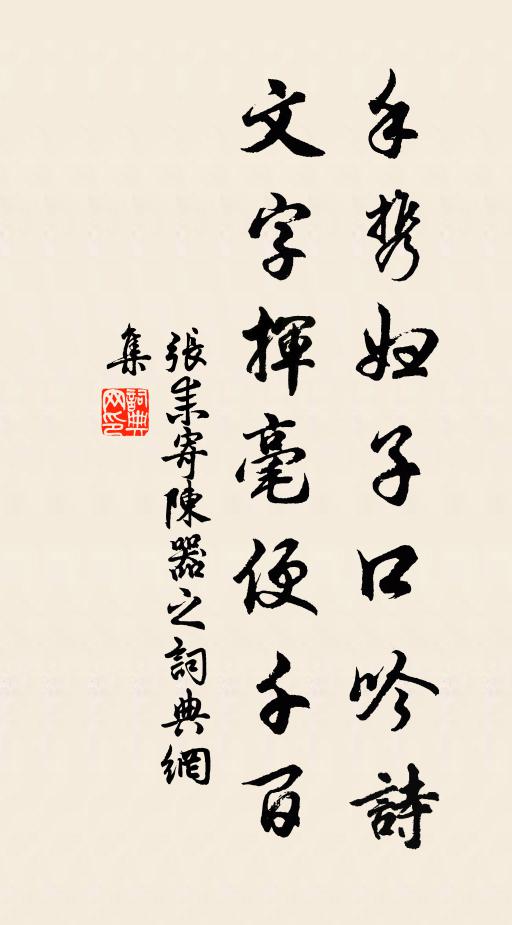 手携妇子口吟詩
文字揮毫便千百
張耒寄陳器之詞典網
集
詞典
网印